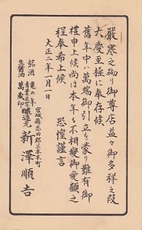 嚴寒之砌り御尊店益々御多祥之段
大慶至極に奉存候
舊年中萬端御引立を蒙り難有御
禮申上候尚は本年も不相變御愛顧之
程奉希上候
恐惶謹言
大正二年一月一日
宮城縣志田郡三本木町
新澤順吉